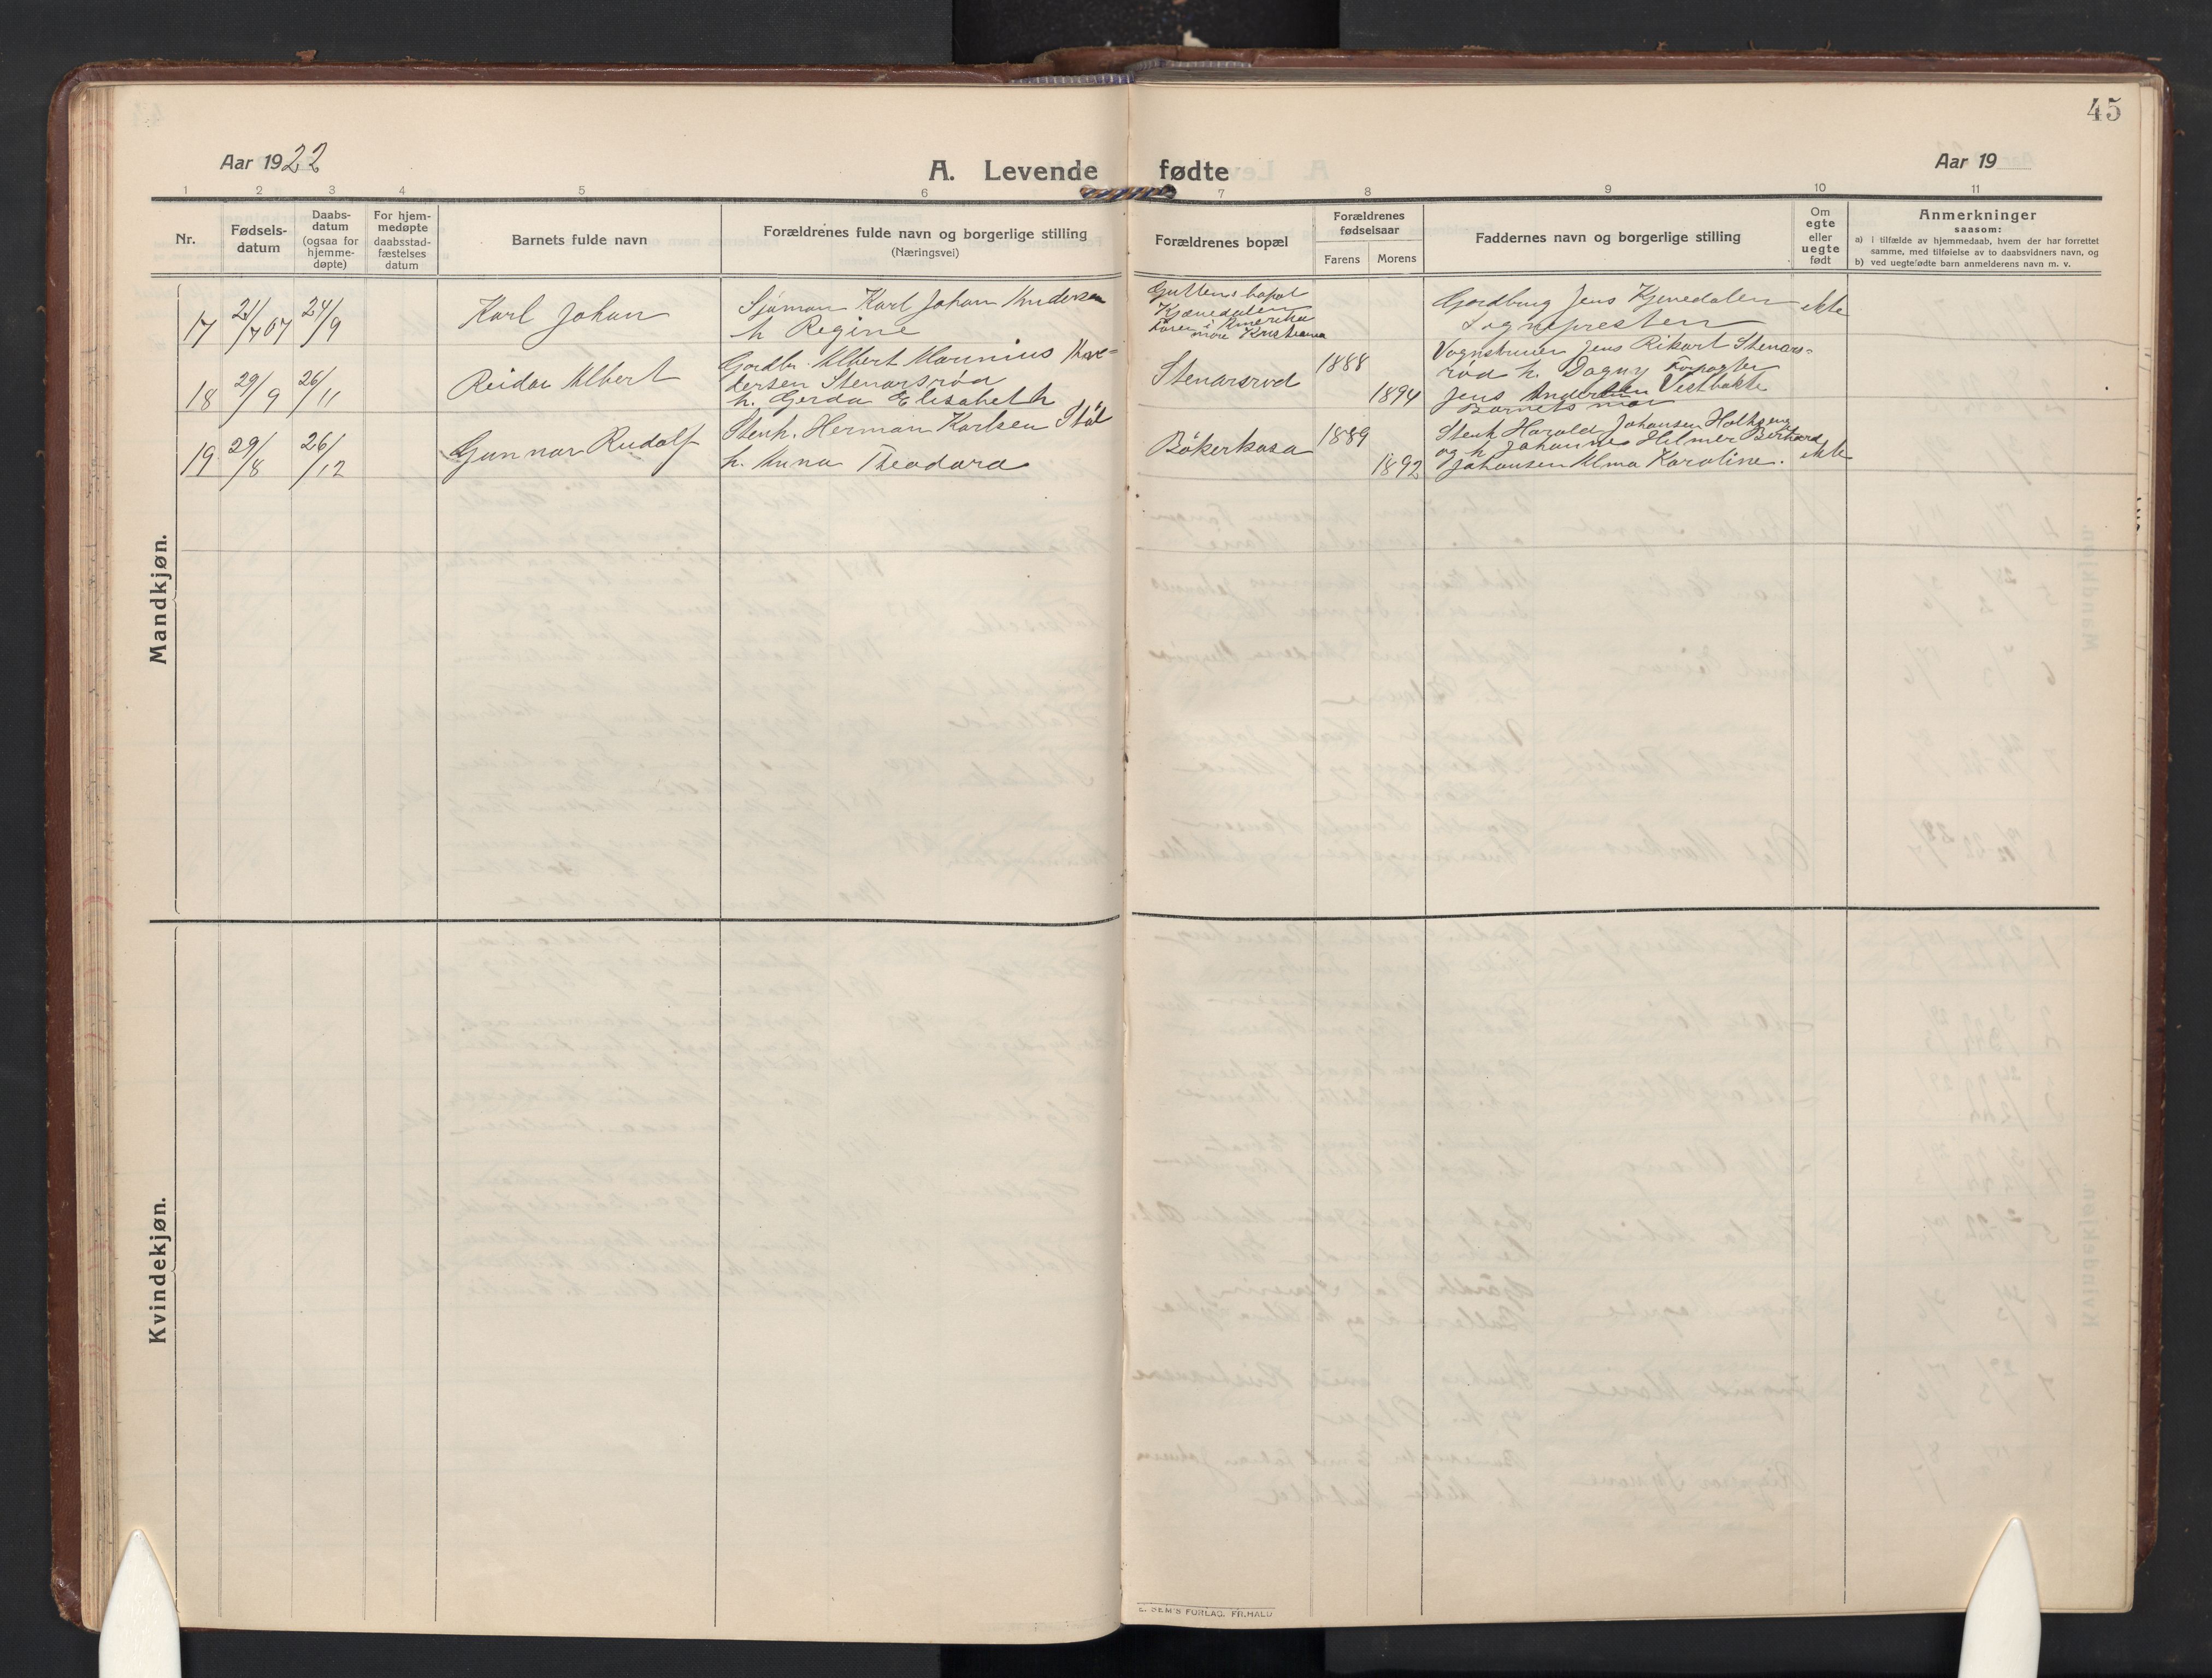 45
Aar 1922
A. Levende fødte
Aar 19
1 2 3 4 5 6 7 8 9 10 11
Nr.
Fødsels-
datum
Daabs-
datum
(ogsaa for
hjemme-
døpte)
For hjem-
medøpte
daabsstad-
fæstelses
datum
Barnets fulde navn
Forældrenes fulde navn og borgerlige stilling
(Næringsvei)
Forældrenes bopæl
Forældrenes
fødselsaar
Farens Morens
Faddernes navn og borgerlige stilling
Om
egte
eller
uegte
født
Anmerkninger
saasom:
a) i tilfælde av hjemmedaab, hvem der har forrettet
samme, med tilføielse av to daabsvidners navn, og
b) ved uegtefødte barn anmelderens navn m. v.
Mandkjøn.
17 21/7 07 24/9 Karl Johan
Sjøman Karl Johan Andersen
h Regine
Guttens bopæl
Kjænedalen
Faren i Amerika
more Kristiania
Gardbrug Jens Kjenedalen
Sognepresten
ekte
18 29/9 26/11 Reidar Albert
Gardbr. Albert Marinius
dersen Stenarsrød
h. Gerda Elisabeth
Stenarsrød
1888
1894
Vognstruer Jens Rikart Stenars-
rød h. Dagny Forpagter
Jens Andersen Vestbakke
Barnets mor
19 29/8 26/12 Gunnar Rudolf
Stenh. Herman Karlsen Stål
h. Anna Theodora
Bökerkasa
1889
1892
Stenh Harald Johansen Holtseng
og h Johanne Hilmer Berhard
Johansen Alma Karoline.
ekte
Kvindekjøn.
E. SEM'S FORLAG, FR.HALD